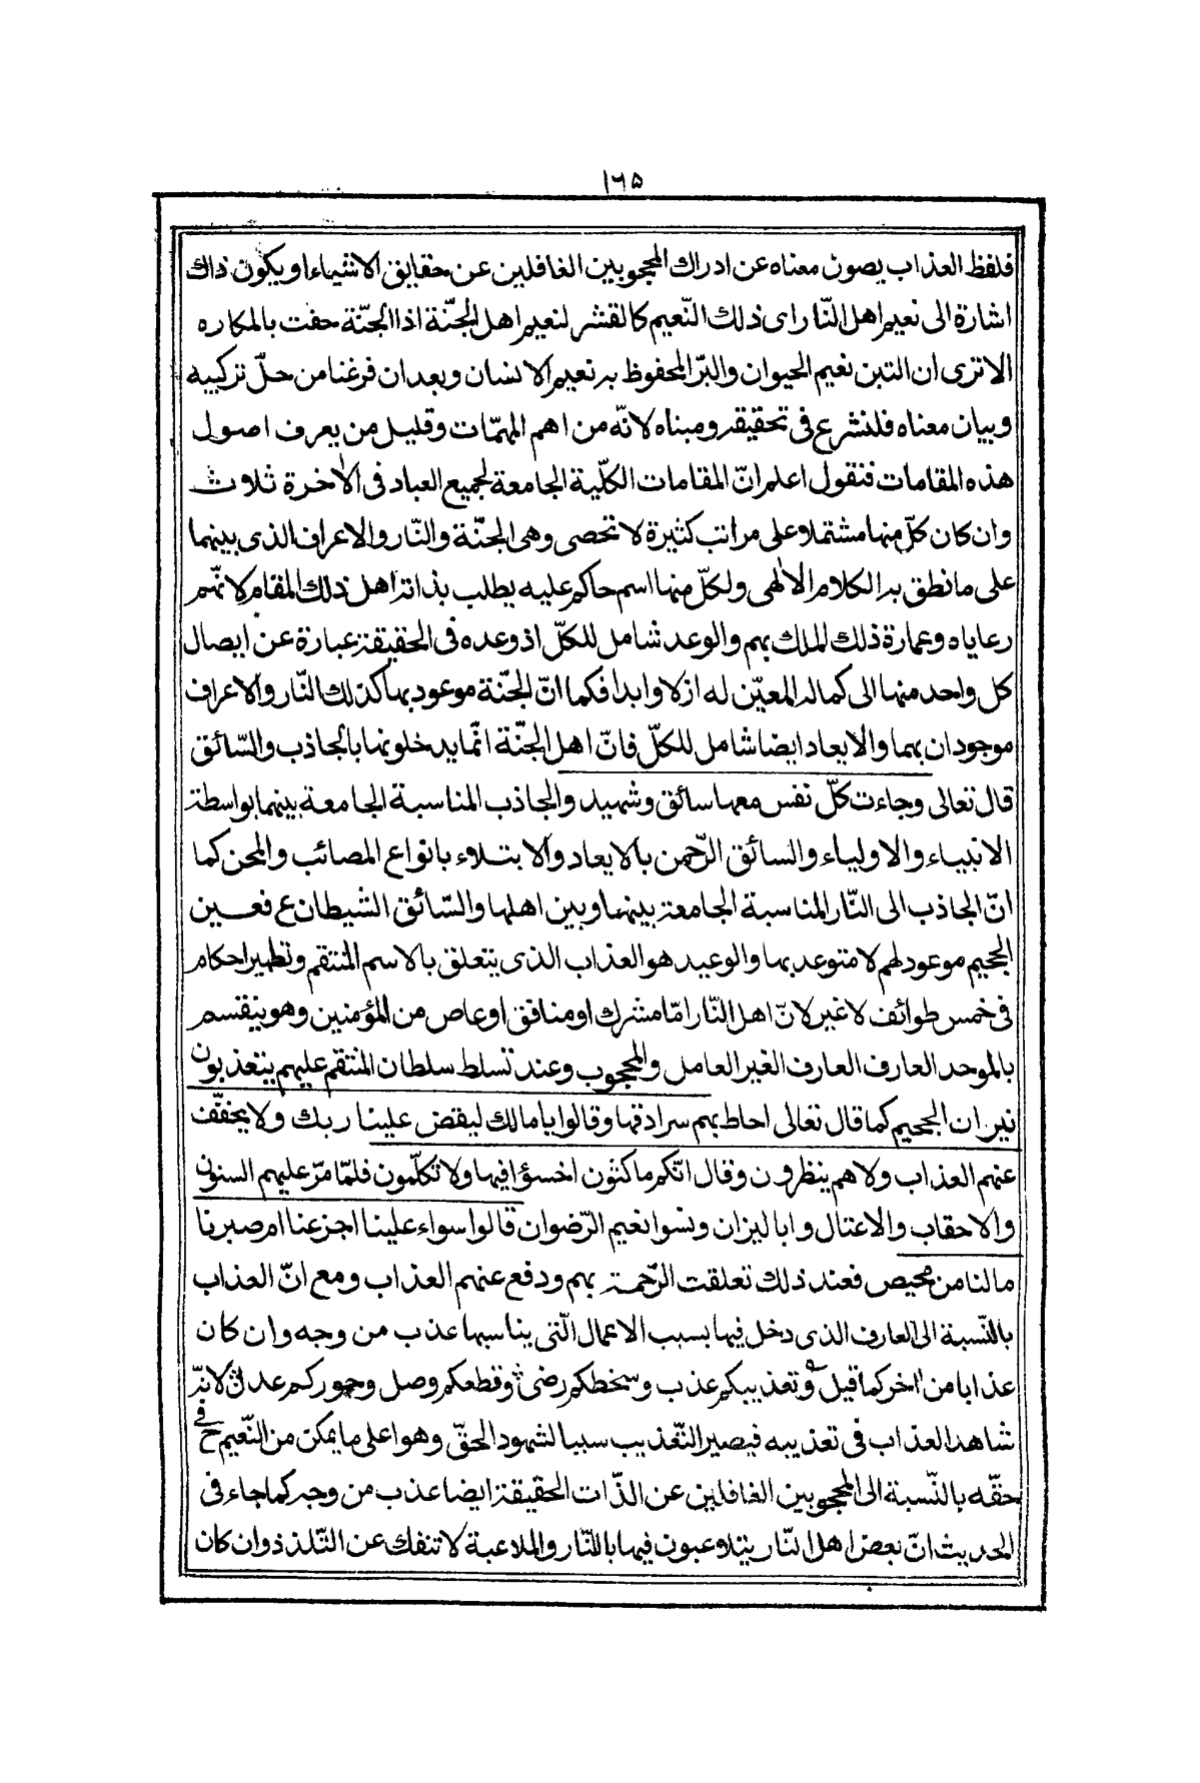 ۱۶۵
فلفظ العذاب يصون معناه عن ادراك المحجوبين الغافلين عن حقايق الاشياء او يكون ذلك
اشارة الى نعيم اهل النّار اى ذلك النّعيم كالقشر لنعيم اهل الجنّة اذ الجنّة حفت بالمكاره
الا ترى ان التبن نعيم الحيوان والبرّ المحفوظ به نعيم الانسان وبعد ان فرغنا من حلّ تركيبه
وبيان معناه فلنشرع فى تحقيقه ومبناه لانّه من اهم المهمّات وقليل من يعرف اصول
هذه المقامات فنقول اعلم انّ المقامات الكلّية الجامعة لجميع العباد فى الآخرة ثلاث
وان كان كلّ منها مشتملا على مراتب كثيرة لا تحصى وهى الجنّة والنّار والاعراف الذى بينهما
على ما نطق به الكلام الالٰهى ولكلّ منها اسم حاكم عليه يطلب بذاته اهل ذلك المقام لانّهم
رعاياه وعمارة ذلك الملك بهم والوعد شامل للكلّ اذ وعده فى الحقيقة عبارة عن ايصال
كل واحد منها الى كماله المعيّن له ازلا وابدا فكما انّ الجنّة موعود بها كذلك النّار والاعراف
موجودان بهما والايعاد ايضا شامل للكلّ فانّ اهل الجنّة انّما يدخلونها بالجاذب والسّائق
قال تعالى وجاءت كلّ نفس معها سائق وشهيد والجاذب المناسبة الجامعة بينهما بواسطة
الانبياء والاولياء والسائق الرّحمن بالايعاد والابتلاء بانواع المصائب والمحن كما
انّ الجاذب الى النّار المناسبة الجامعة بينها وبين اهلها والسّائق الشيطان ع فعين
الجحيم موعود لهم لا متوعد بها والوعيد هو العذاب الذى يتعلق بالاسم المنتقم وتظهر احكام
فى خمس طوائف لا غير لانّ اهل النّار امّا مشرك او منافق او عاص من المؤمنين وهو ينقسم
بالموحد العارف العارف الغير العامل والمحجوب وعند تسلط سلطان المنتقم عليهم يتعذبون
نيران الجحيم كما قال تعالى احاط بهم سرادقها وقالوا يا مالك ليقض علينا ربك ولا يخفّف
عنهم العذاب ولا هم ينظرون وقال انّكم ماكثون اخسؤا فيها ولا تكلّمون فلمّا مرّ عليهم السنون
والاحقاب والاعتال وابا ليزان ونسوا نعيم الرّضوان قالوا سواء علينا اجزعنا ام صبرنا
ما لنا من محيص فعند ذلك تعلقت الرّحمة بهم ودفع عنهم العذاب ومع انّ العذاب
بالنّسبة الى العارف الذى دخل فيها بسبب الاعمال الّتى يناسبها عذب من وجه وان كان
عذابا من آخر كما قيل وتعذيبكم عذب وسخطكم رضى وقطعكم وصل وجوركم عدل لانّه
شاهد العذاب فى تعذيبه فيصير التّعذيب سببا لشهود الحقّ وهو اعلى ما يمكن من النّعيم ح فى
حقّه بالنّسبة الى المحجوبين الغافلين عن الذّات الحقيقة ايضا عذب من وجه كما جاء فى
الحديث انّ بعض اهل النّار يتلاعبون فيها بالنّار والملاعبة لا تنفك عن التّلذذ وان كان